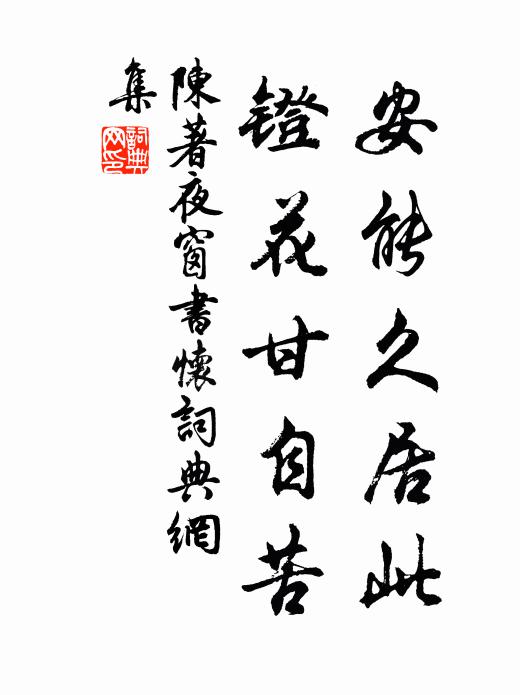 安能久居此
鐙花甘自苦
陳著夜窗書懷詞典網
集
詞典网印